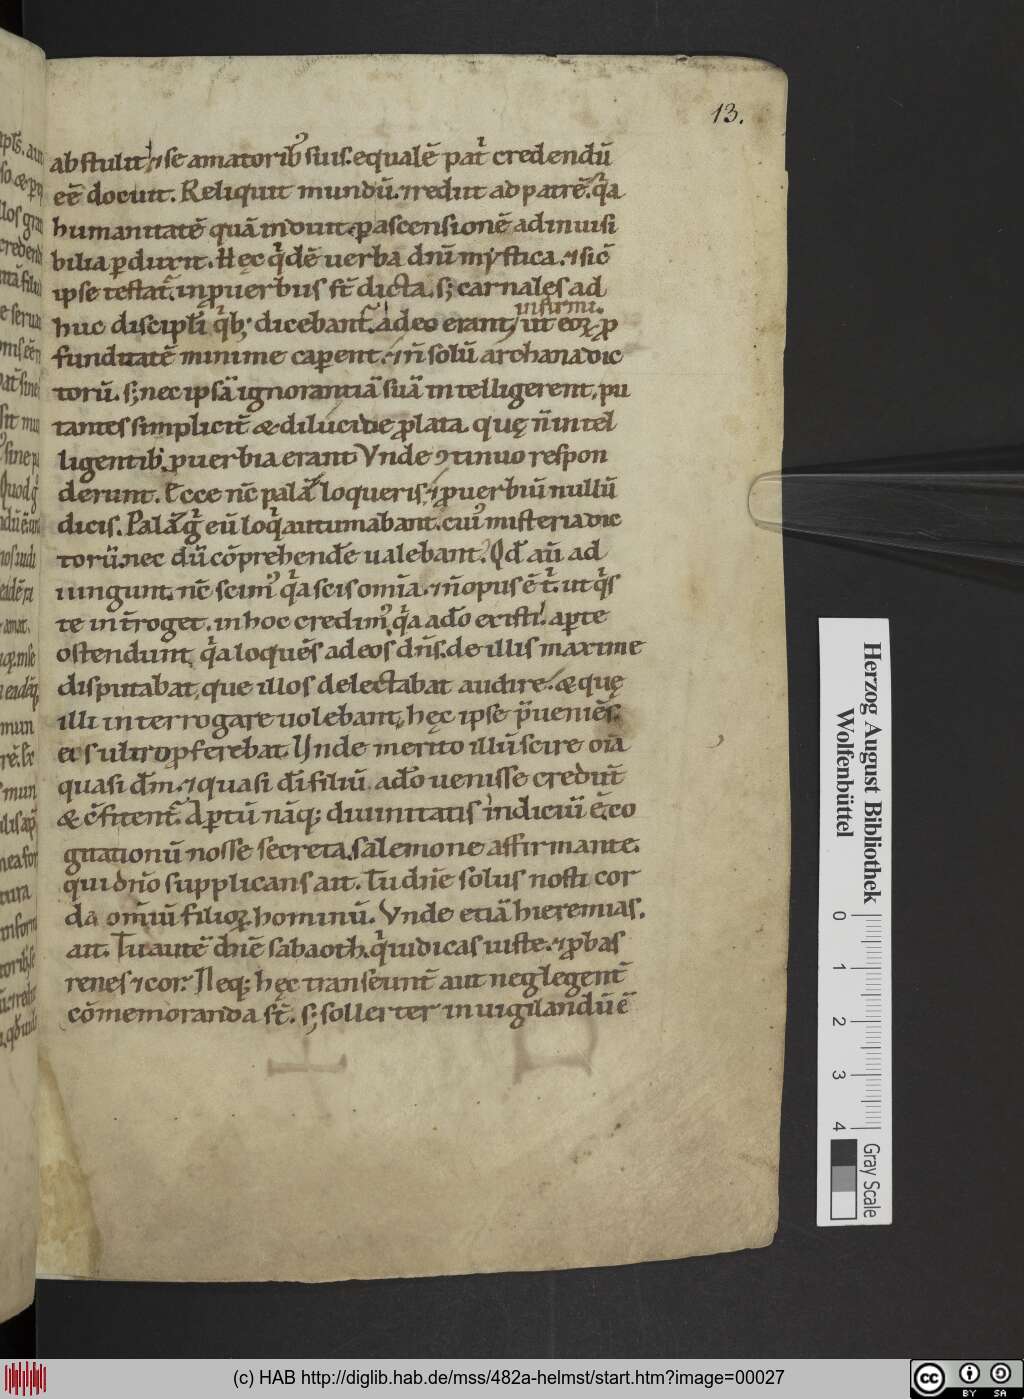 13.
abstulit, ⁊ se amatorib; suis. equalē patⁱ credendū
eē docuit. Reliquit mundū. ⁊ rediit ad patrē. qⁱa
humanitatē quā induit. ꝑ ascensionē ad inuisi
bilia ꝑduxit. Hęc qⁱdē uerba dnī mystica. ⁊ sic̄
ipse testat᷑. in ꝓuerbiis st̄ dicta. s; carnales ad
infirmi.
huc discipłi qⁱb; dicebant᷑. adeo erant, ut eoꝝ ꝓ
funditatē minime caperent. ⁊ n̄ solū archana dic
torū. s; nec ipsā ignorantiā suā intelligerent, pu
tantes simplicit̄ & dilucide ꝓlata. quę n̄ intel
ligentib; ꝓuerbia erant. Vnde ꝯtinuo respon
derunt. Ecce nc̄ palā loqueris, ⁊ ꝓuerbiū nullū
dicis. Palā gͥ eū loqⁱ autumabant. cui᷒ misteria dic
torū. nec dū cōprehende᷑ ualebant. Qđ aū ad
iungunt. nc̄ scim᷒ qⁱa scis om̄ia. ⁊ n̄ opus ē tⁱ. ut qⁱs
te int̄roget. in hoc credim᷒ qⁱa a dō existi. aꝑte
ostendunt, qⁱa loquēs ad eos dn̄s. de illis maxime
disputabat, que illos delectabat audire. & quę
illi interrogare uolebant, hęc ipse p̄ueniēs.
eis ultro ꝓferebat. Vnde merito illū scire oīa
quasi dm̄. ⁊ quasi dī filiū. a dō uenisse credūt
& c̄fitent᷑. Aꝑtū nāq; diuinitatis indiciū ē. co
gitationū nosse secreta. salemone affirmante.
qui dn̄o supplicans ait. Tu dn̄e solus nosti cor
da om̄iū filioꝝ hominū. Vnde etiā hieremias.
ait. Tu autē dn̄e sabaoth. qⁱ iudicas iuste. ⁊ ꝓbas
renes ⁊ cor. Neq; hęc transeunt̄ aut neglegent̄
cōmemoranda st̄. s; sollerter inuigilandū ē
Herzog August Bibliothek
Wolfenbüttel
0 1 2 3 4
Gray Scale
(c) HAB http://diglib.hab.de/mss/482a-helmst/start.htm?image=00027
cc BY SA